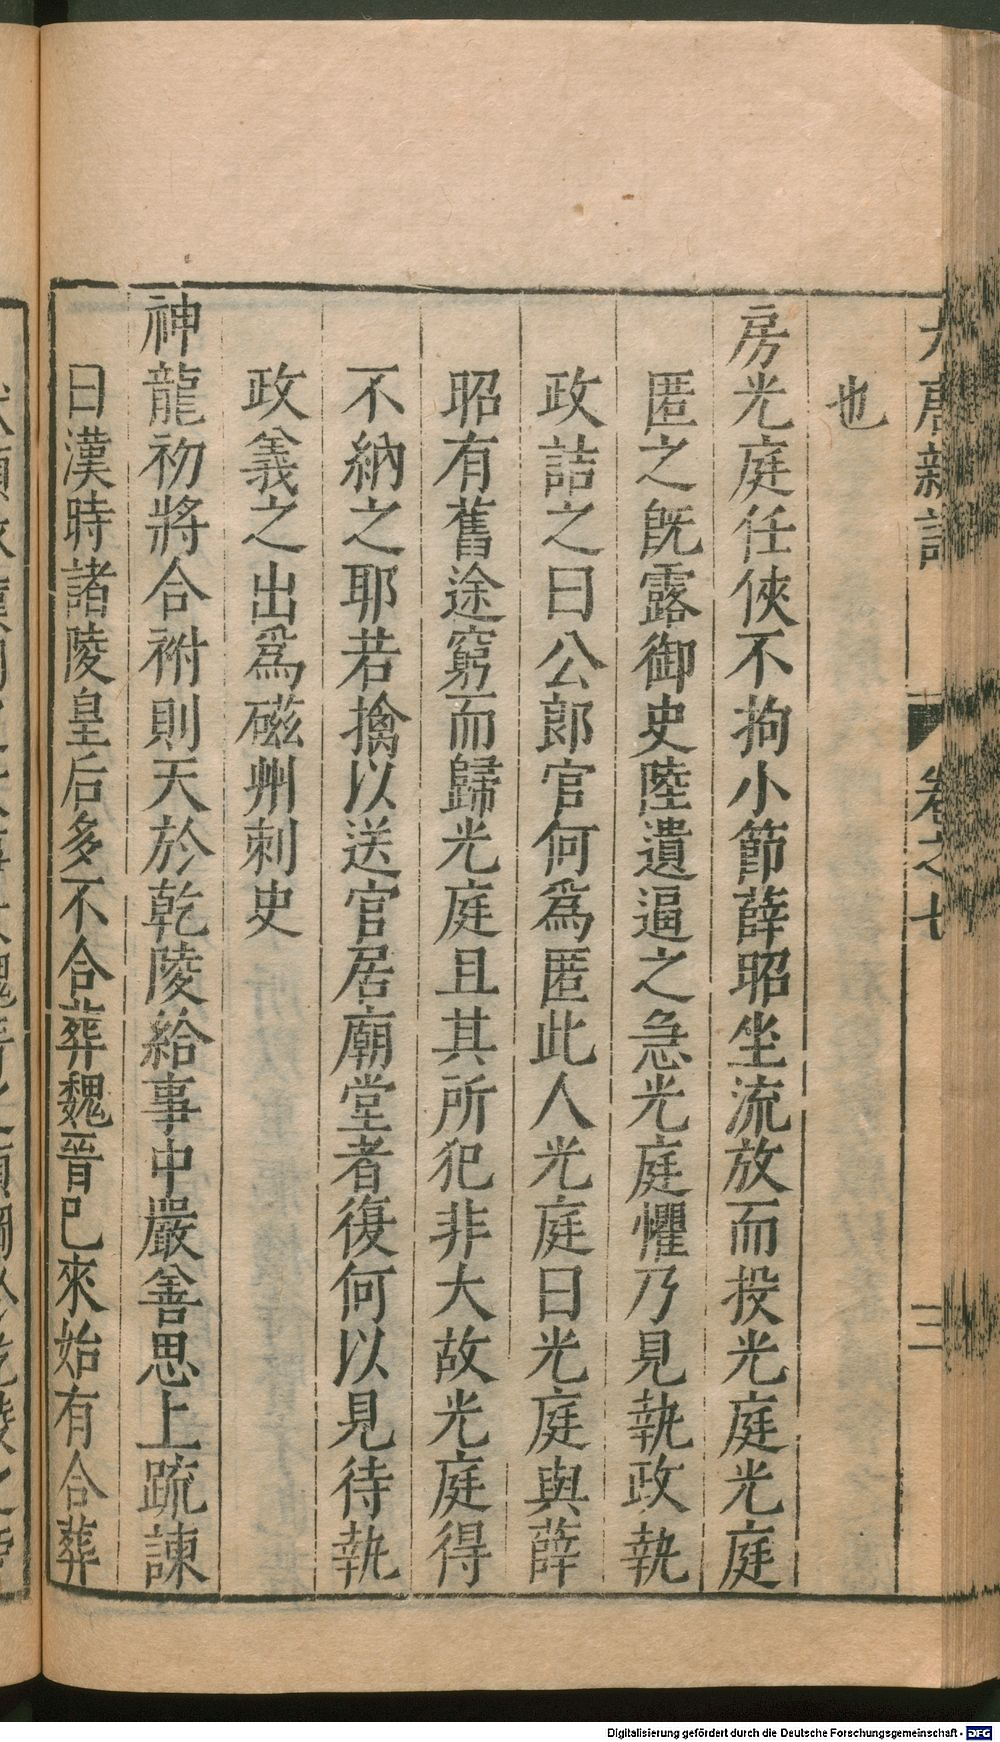 大唐新語 卷之七 三
也
房光庭任俠不拘小節薛昭坐流放而投光庭光庭
匿之旣露御史陸遺逼之急光庭懼乃見執政執
政詰之曰公郎官何爲匿此人光庭曰光庭與薛
昭有舊途窮而歸光庭且其所犯非大故光庭得
不納之耶若擒以送官居廟堂者復何以見待執
政義之出爲磁州刺史
神龍初將合祔則天於乾陵給事中嚴善思上疏諫
曰漢時諸陵皇后多不合葬魏晉巳來始有合葬
Digitalisierung gefördert durch die Deutsche Forschungsgemeinschaft - DFG